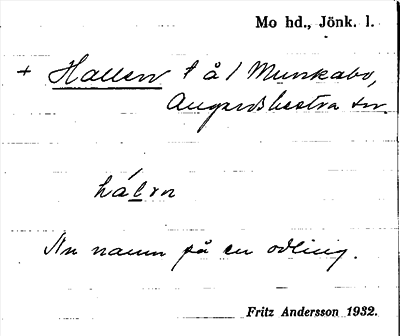 Mo hd., Jönk. l.
+ Hallen t å / Munkabo,
Angerdshestra sn.
hálṇ
Nu namn på en odling.
Fritz Andersson 1932.